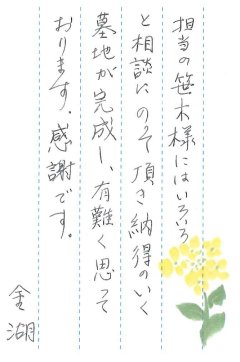 担当の笹木様にはいろいろ
と相談にのそ頂き納得のいく
墓地が完成し、有難く思って
おります。感謝です。
金湖